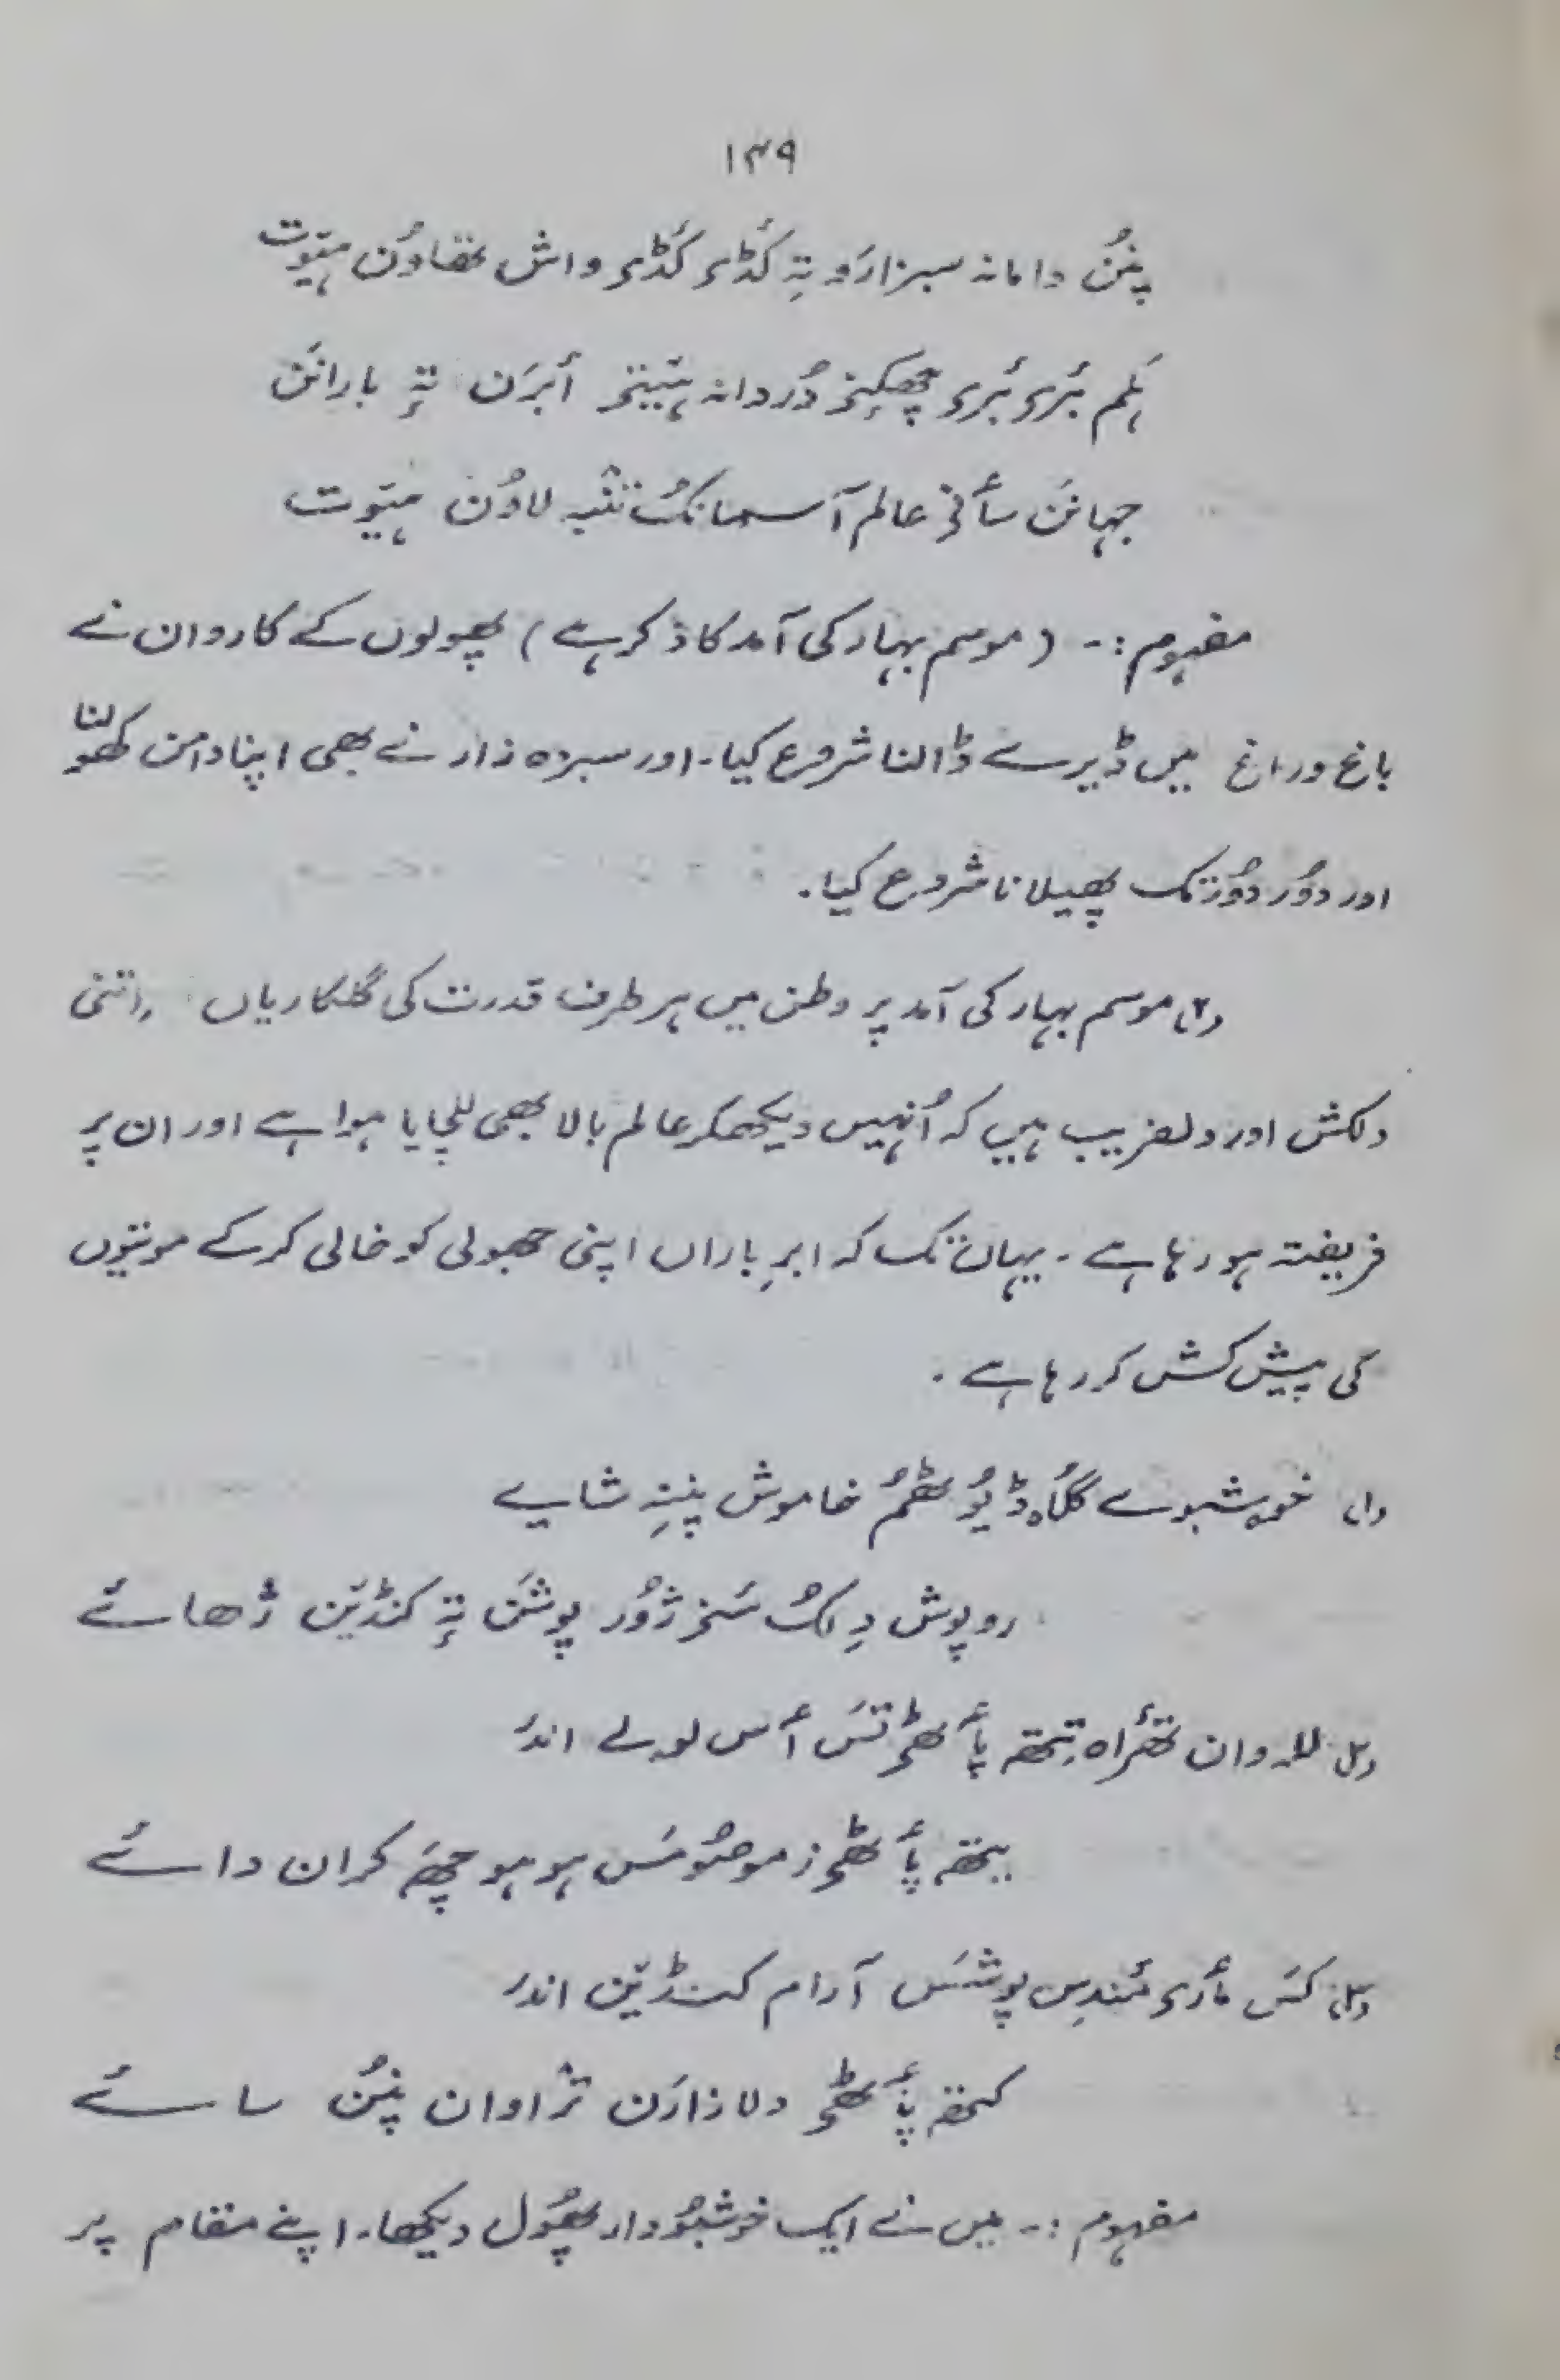 ۱۳۹
پنُن دامانہ سبزارَو تہٕ کَڈی کَڈی واش تھاوُن ہیتوٚت
ہَلم بٔری بٔری چھکنہِ دُردانہ ہیتنی أبرَن تہٕ بارانَن
جہانَن سأنی عالم آسمانکُ لاوُن ہیتوٚت
مفہوم :۔ (موسم بہار کی آمد کا ذکر ہے) پھولوں کے کاروان نے
باغ و راغ میں ڈیرے ڈالنا شروع کیا۔ اور سبزہ زار نے بھی اپنا دامن کھولنا
اور دوُر دوُر تک پھیلانا شروع کیا۔
(۲) موسم بہار کی آمد پر وطن میں ہر طرف قدرت کی گلکاریاں اتنی
دلکش اور دلفریب ہیں کہ اُنہیں دیکھکر عالم بالا بھی للچایا ہوا ہے اور ان پر
فریفتہ ہو رہا ہے۔ یہاں تک کہ ابرِ باراں اپنی جھولی کو خالی کر کے موتیوں
کی پیش کش کر رہا ہے۔
(۱) خوشبوے گُلاہ ڈیوٗٹھمُ خاموش پننہِ شایے
روپوش دِلکُ سَنٛر ژوٗر پوشَن تہٕ کنڈیَن ژھائے
(۲) للہ وان تھٔراہ تِتھہ پأٹھی تَس أس لولے اندرَ
یتھہ پأٹھی زِ موصوٗمَس ہو ہو چھَ کران دائے
(۳) کَس مأری مَندِس پوشَس آرام کنڈیَن اندرَ
کتھہ پأٹھی دلازارَن تراوان پنُن سائے
مفہوم :۔ میں نے ایک خوشبوُدار پھوُل دیکھا۔ اپنے مقام پر